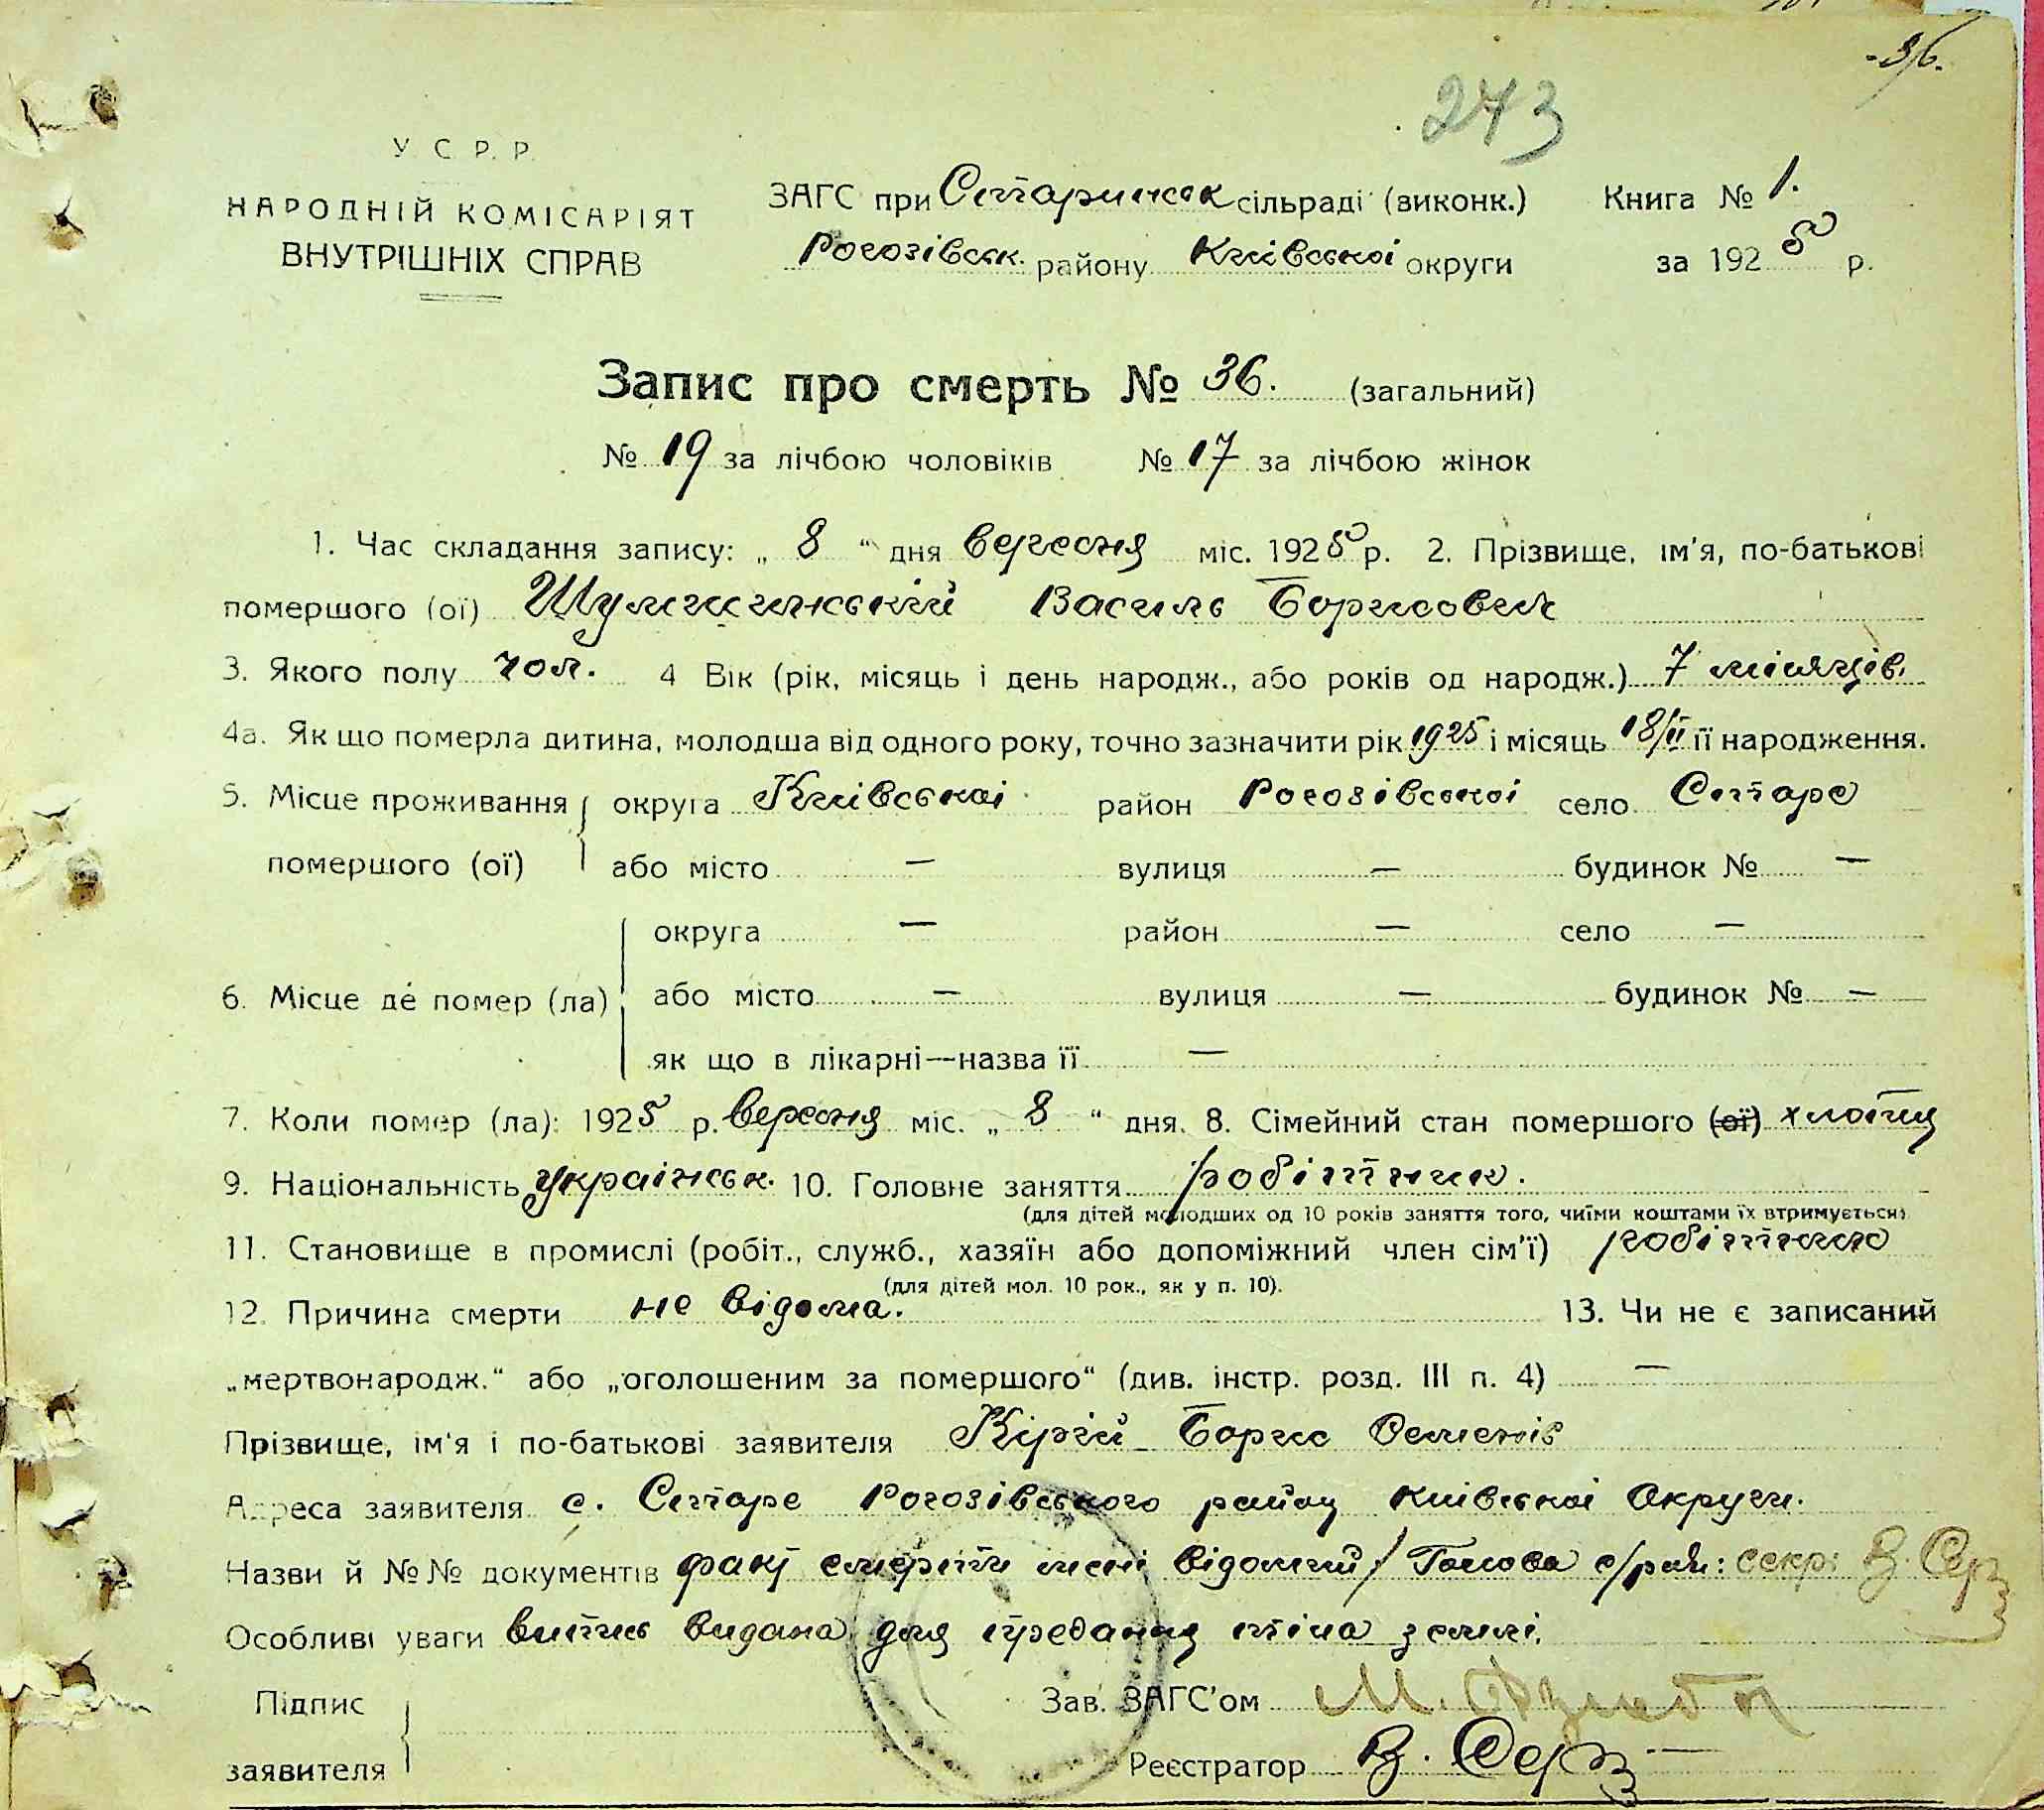 36.
273
У С Р. Р.
НАРОДНІЙ КОМІСАРІЯТ
ВНУТРІШНІХ СПРАВ
ЗАГС при Старинськ сільраді (виконк.) Книга № 1.
Рогозівськ. району Київської округи за 1925 р.
Запис про смерть № 36. (загальний)
№ 19 за лічбою чоловіків № 17 за лічбою жінок
1. Час складання запису: „ 8 “ дня вересня міс. 1925 р. 2. Прізвище, ім'я, по-батькові
помершого (ої) Василь Борисович
3. Якого полу чол. 4 Вік (рік, місяць і день народж., або років од народж.) 7 місяців.
4а. Як що померла дитина, молодша від одного року, точно зазначити рік 1925 і місяць 18/II її народження.
5. Місце проживання округа Київської район Рогозівської село Старе
помершого (ої) або місто — вулиця — будинок № —
округа — район — село —
6. Місце де помер (ла) або місто — вулиця — будинок № —
як що в лікарні—назва її —
7. Коли помер (ла): 1925 р. вересня міс. „ 8 “ дня. 8. Сімейний стан помершого (ої) хлопец
9. Національність українськ. 10. Головне заняття робітник.
(для дітей молодших од 10 років заняття того, чиїми коштами їх втримується)
11. Становище в промислі (робіт., служб., хазяїн або допоміжний член сім'ї)
(для дітей мол. 10 рок., як у п. 10).
12. Причина смерти не відома. 13. Чи не є записаний
„мертвонародж.“ або „оголошеним за помершого“ (див. інстр. розд. III п. 4) —
Прізвище, ім'я і по-батькові заявителя Борис Семенів
Адреса заявителя с. Старе Рогозівського району Київської Округи.
Назви й №№ документів факт смерти мені відомий / Голова с/ради: секр: В. Сер
Особливі уваги випис видана для предания тіла землі.
Підпис
заявителя
Зав. ЗАГС'ом
Реєстратор В. Сер